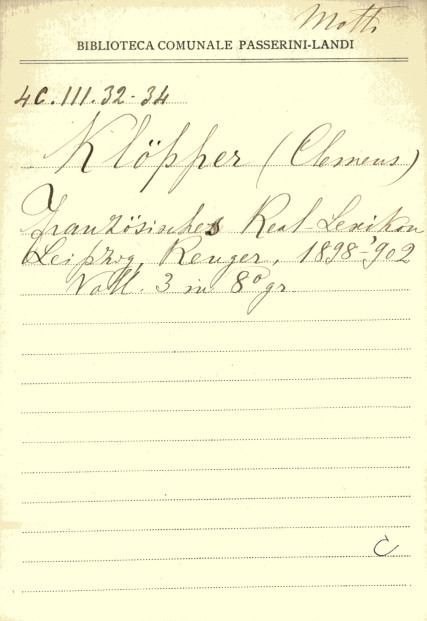 Motti
BIBLIOTECA COMUNALE PASSERINI-LANDI
4C.III.32-34
Klöpper (Clemens)
Französisches Real-Lexikon
Leipzig, Renger, 1898-'902
Voll. 3 in 8º gr.
C